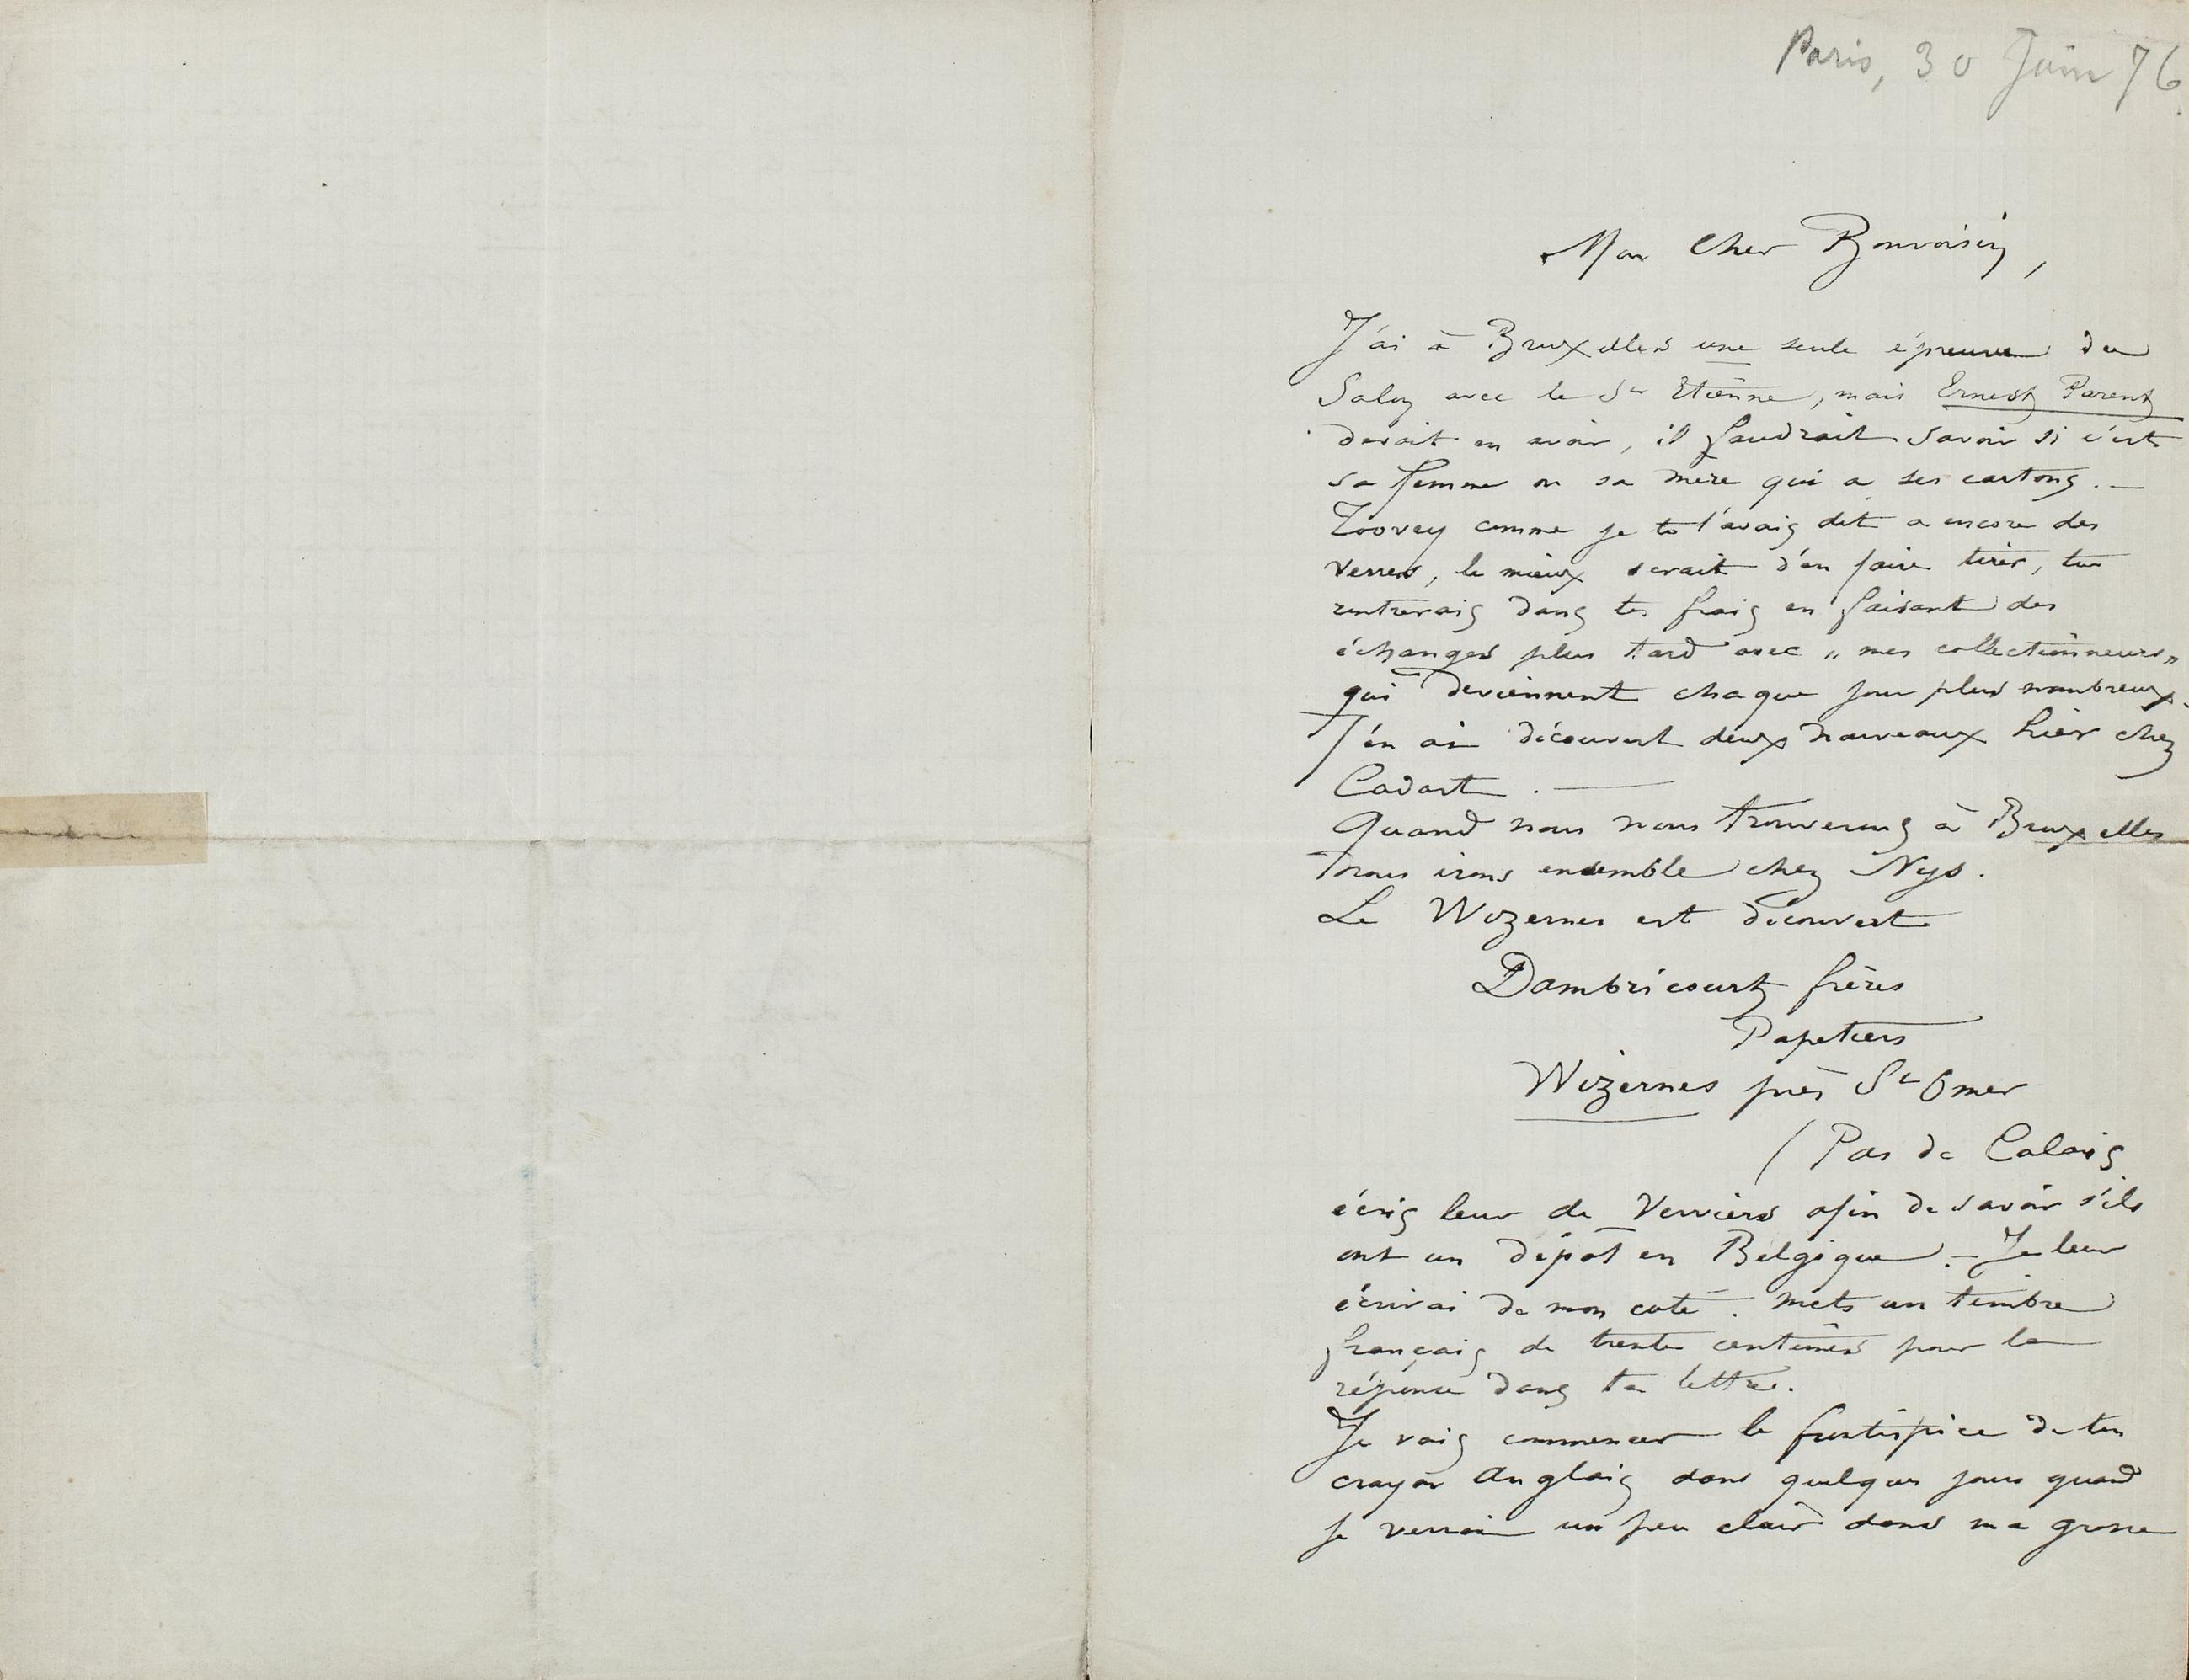 Paris, 30 Juin 76
Mon Cher Bonvoisin,
J'ai à Bruxelles une seule épreuve du
Salon avec le St Etienne, mais Ernest Parent
devait en avoir, il faudrait savoir si c'est
sa femme ou sa mère qui a ses cartons. —
Toovey comme je te l'avais dit a encore des
verres, le mieux serait d'en faire tirer, tu
rentrerais dans tes frais en faisant des
échanges plus tard avec „mes collectionneurs„
qui deviennent chaque jour plus nombreux.
J'en ai découvert deux nouveaux hier chez
Cadart. —
Quand nous nous trouverons à Bruxelles
nous irons ensemble chez Nys.
Le Wizernes est découvert
Dambricourt frères
Papetiers
Wizernes près St Omer
(Pas de Calais
écris leur de Verviers afin de savoir s'ils
ont un dépôt en Belgique. — Je leur
écrirai de mon coté. Mets un timbre
français de trente centimes pour la
réponse dans ta lettre.
Je vais commencer le frontispice de ton
crayon Anglais dans quelques jours quand
je verrai un peu clair dans ma grosse